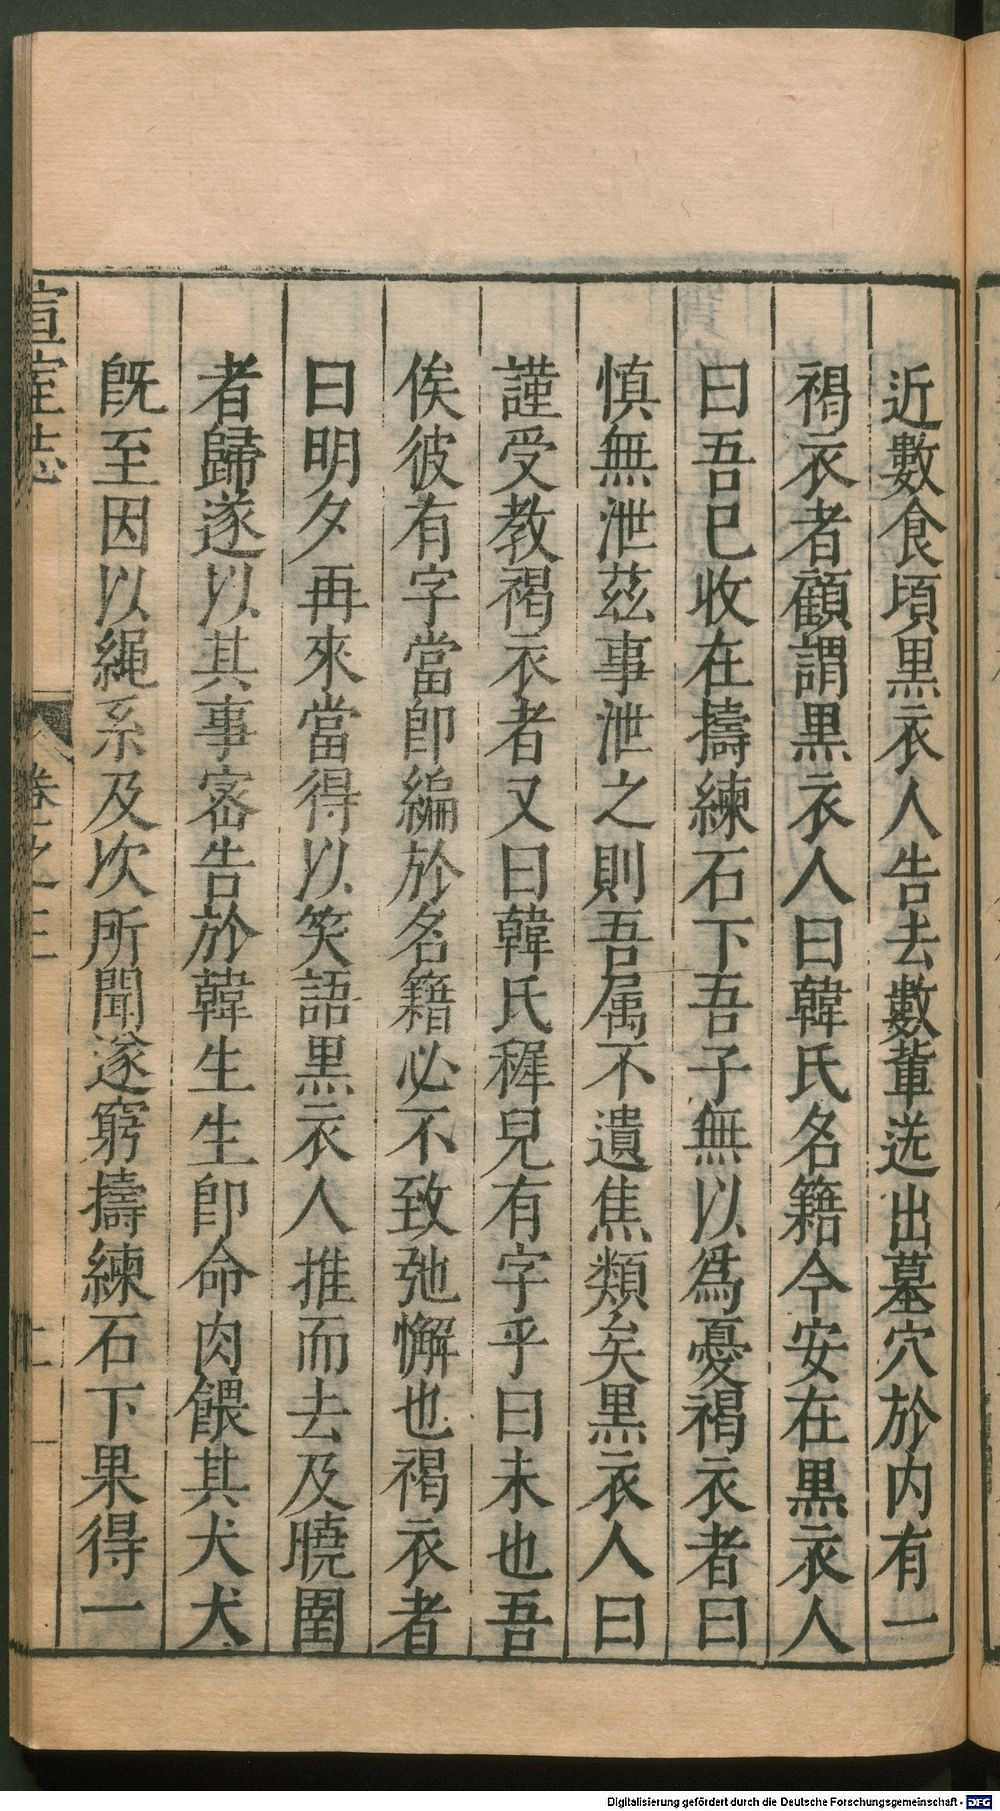 近數食頃黒衣人告去數輩迭出墓穴於内有一
褐衣者顧謂黒衣人曰韓氏名籍今安在黒衣人
曰吾已收在擣練石下吾子無以爲憂褐衣者曰
慎無泄茲事泄之則吾属不遺焦類矣黒衣人曰
謹受教褐衣者又曰韓氏穉兒有字乎曰未也吾
俟彼有字當卽編於名籍必不致弛懈也褐衣者
曰明夕再來當得以笑語黒衣人推而去及曉圉
者歸遂以其事宻告於韓生生卽命肉餵其犬犬
旣至因以繩系及次所聞遂窮擣練石下果得一
宣室志 卷之三 十一
Digitalisierung gefördert durch die Deutsche Forschungsgemeinschaft - DFG